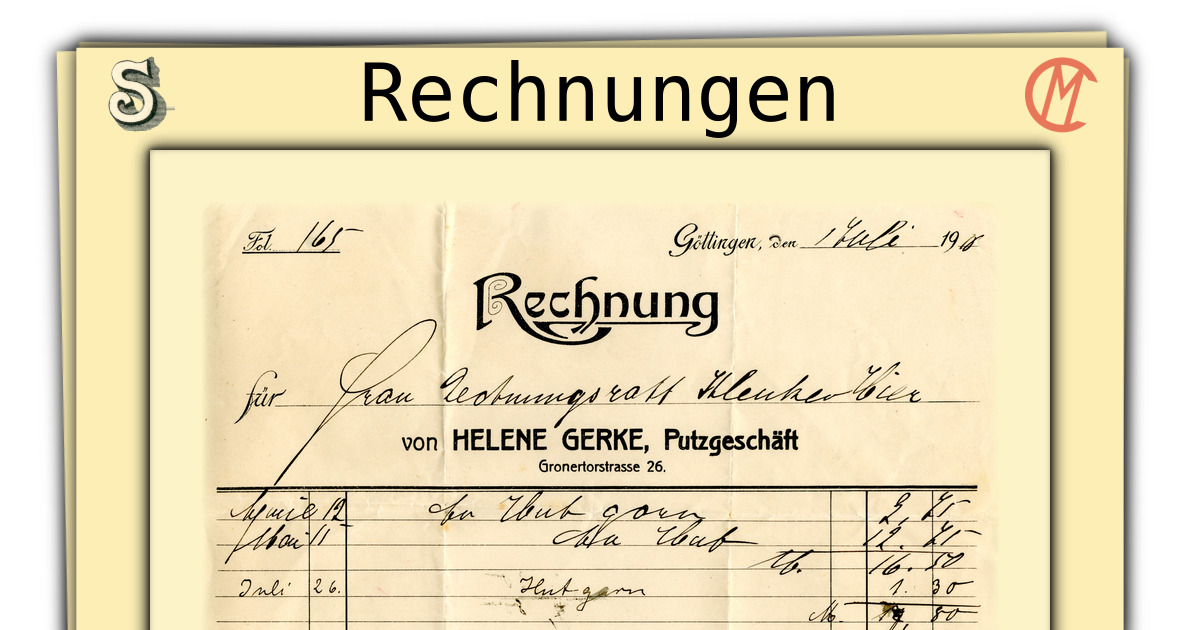 S Rechnungen CM
Fol. 165 Göttingen, den 1 Juli 19
Rechnung
für Frau Rechnungsrath Hier
von HELENE GERKE, Putzgeschäft
Gronertorstrasse 26.
12 Hut garn 2. 75
Mai 11 Hut 12. 75
M. 16. 50
Juli 26. Hut garn 1. 30
M. 80